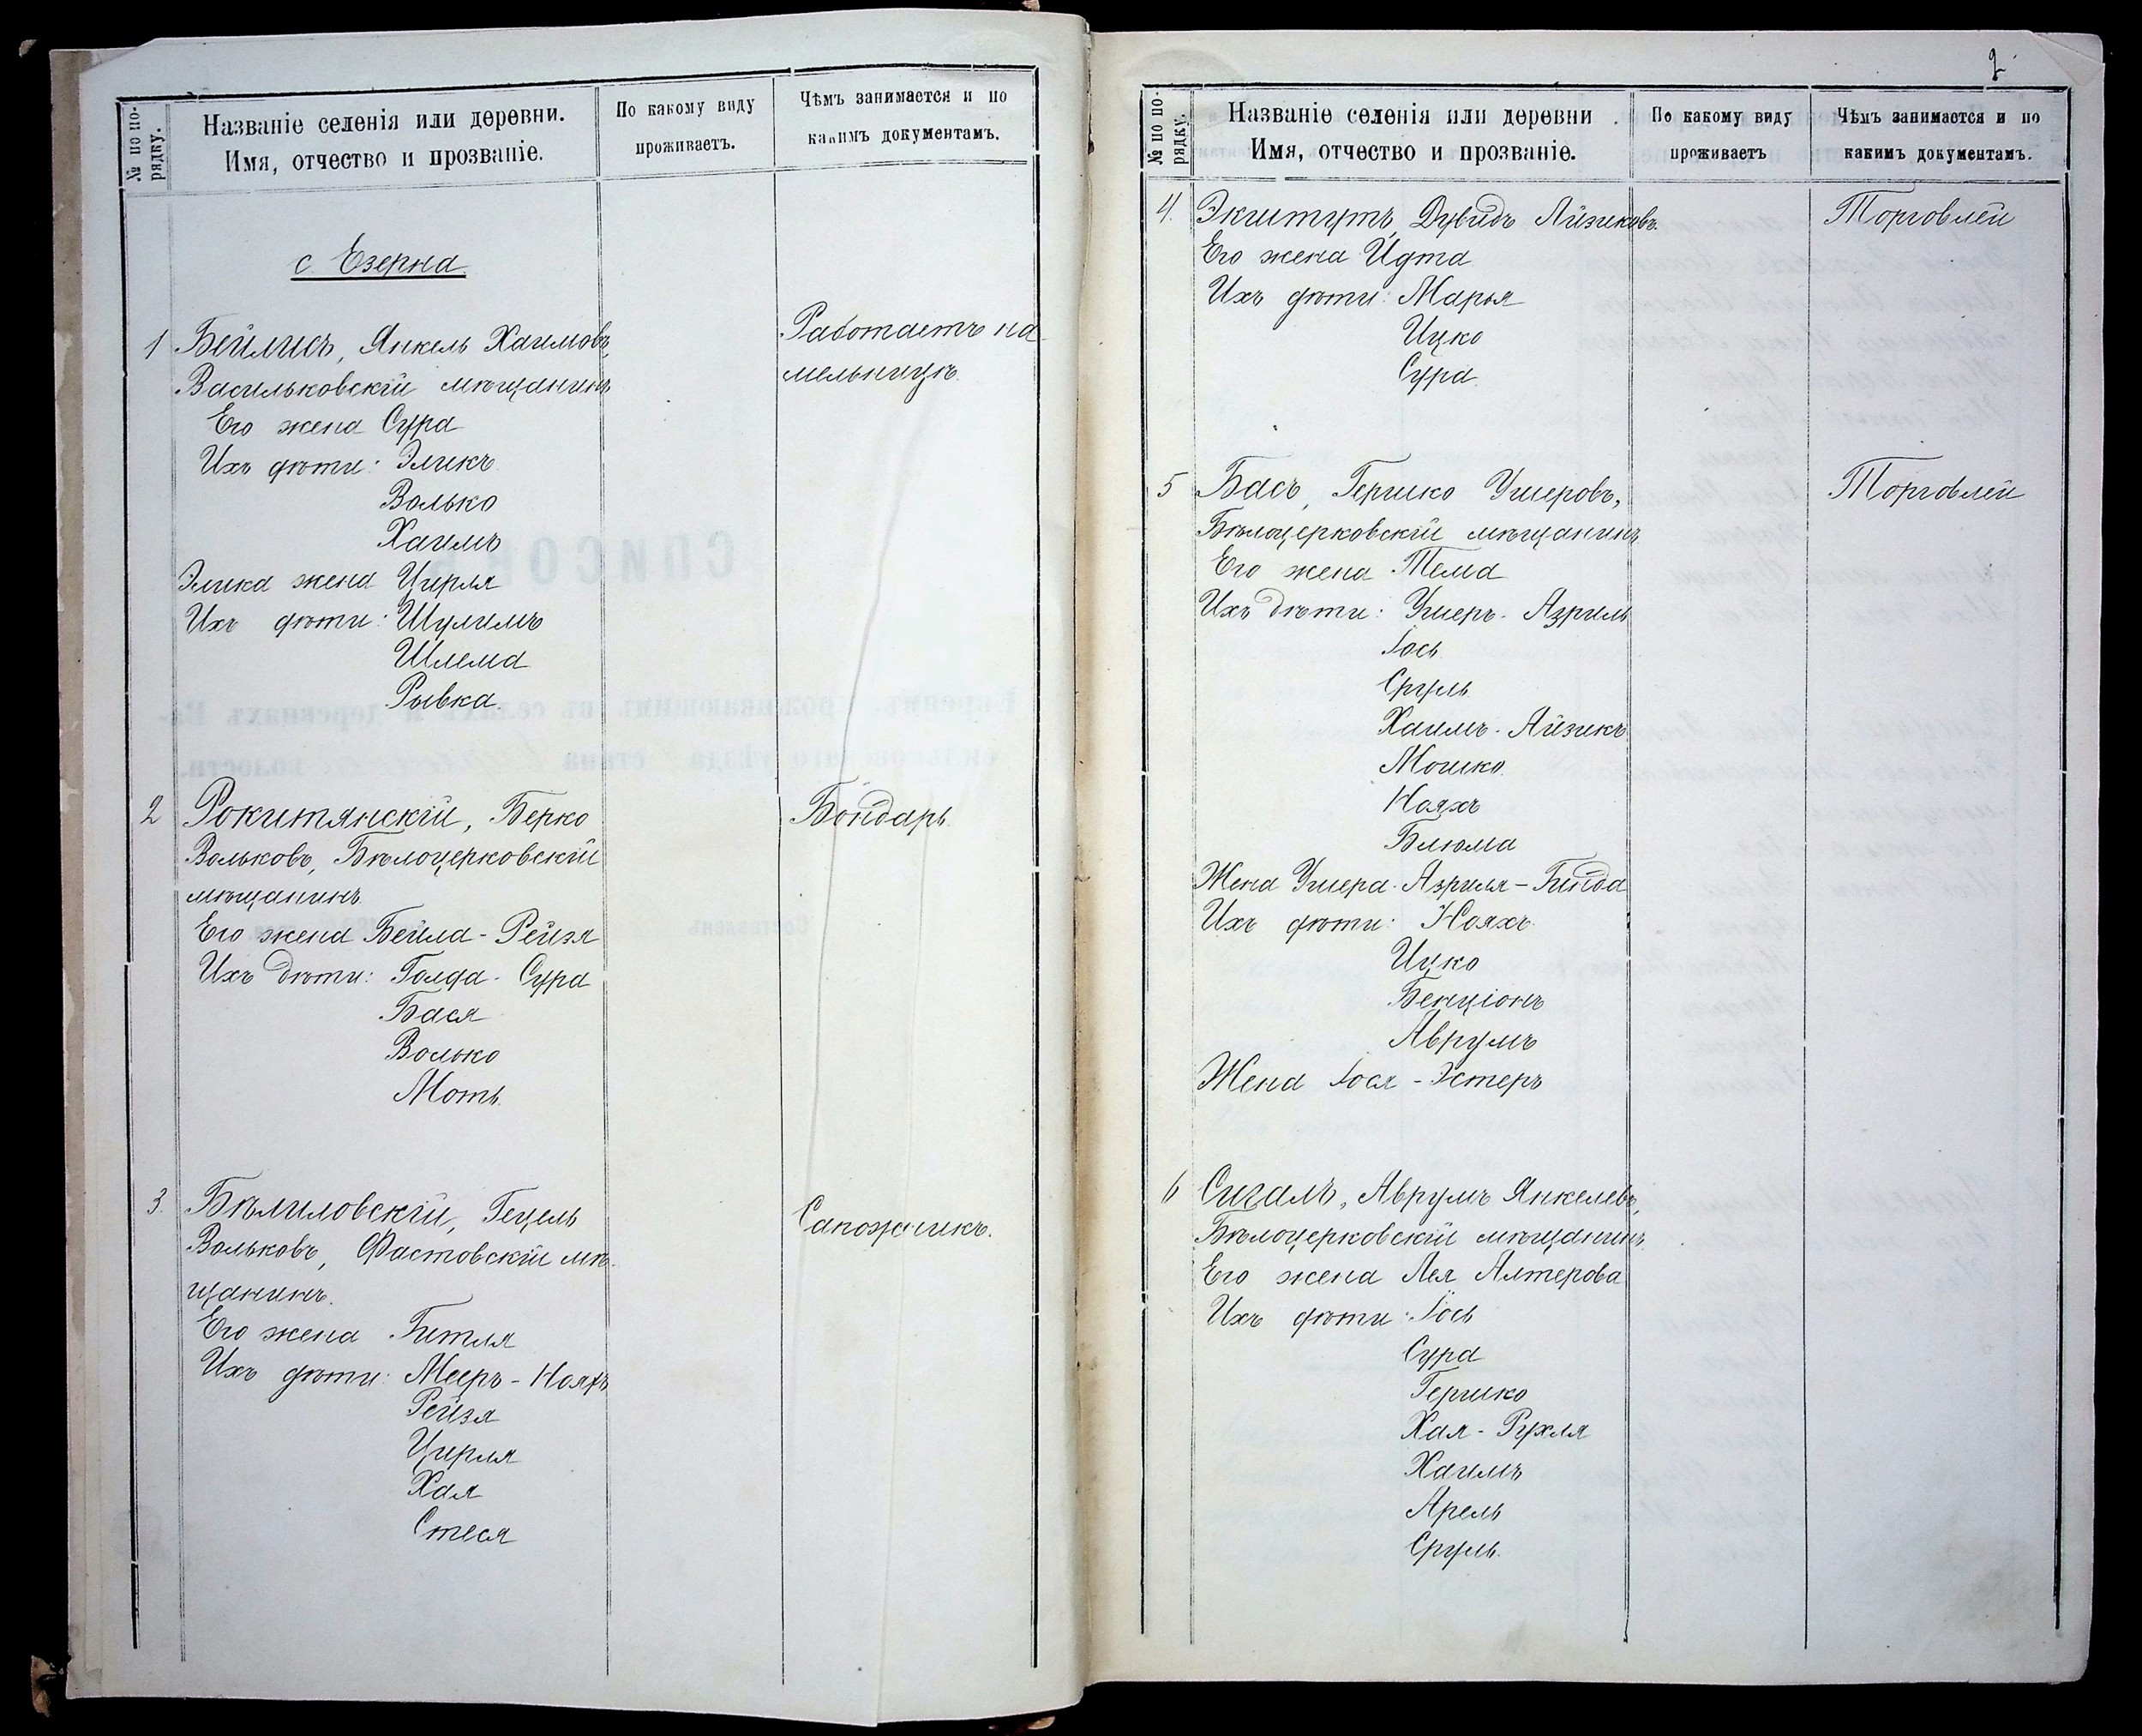 № по по-
рядку.
Названіе селенія или деревни.
Имя, отчество и прозваніе.
По какому виду
проживаетъ.
Чѣмъ занимается и по
какимъ документамъ.
с. Езерна
1 Бейлисъ, Янкель Хаимовъ,
Васильковскій мѣщанинъ
Его жена Сура
Ихъ дѣти: Эликъ
Волько
Хаимъ
Элика жена Цирля
Ихъ дѣти: Шулимъ
Шлема
Рывка.
Работаетъ на
мельницѣ.
2 Рокитянскій, Берко
Вольковъ, Бѣлоцерковскій
мѣщанинъ.
Его жена Бейла-Рейзя
Ихъ дѣти: Голда-Сура
Бася
Волько
Моть.
Бондарь.
3. Бѣлиловскій, Гецель
Вольковъ, Фастовскій мѣ-
щанинъ.
Его жена Гитля
Ихъ дѣти: Мееръ-Нояхъ
Рейзя
Цирля
Хая
Стеся
Сапожникъ.
2
№ по по-
рядку.
Названіе селенія или деревни
Имя, отчество и прозваніе.
По какому виду
проживаетъ
Чѣмъ занимается и по
какимъ документамъ.
4. Экштутъ, Дувидъ Айзиковъ.
Его жена Идта
Ихъ дѣти: Марья
Ицко
Сура.
Торговлей
5 Басъ, Гершко Ушеровъ,
Бѣлоцерковскій мѣщанинъ
Его жена Тема
Ихъ дѣти: Ушеръ-Азриль
Іось
Сруль
Хаимъ-Айзикъ
Мошко
Нояхъ
Блюма
Жена Ушера-Азриля-Гинда
Ихъ дѣти: Нояхъ
Ицко
Бенціонъ
Аврумъ
Жена Іося-Эстеръ
Торговлей
6 Сигалъ, Аврумъ Янкелевъ,
Бѣлоцерковскій мѣщанинъ.
Его жена Лея Алтерова
Ихъ дѣти: Іось
Сура
Гершко
Хая-Рухля
Хаимъ
Арель
Сруль.